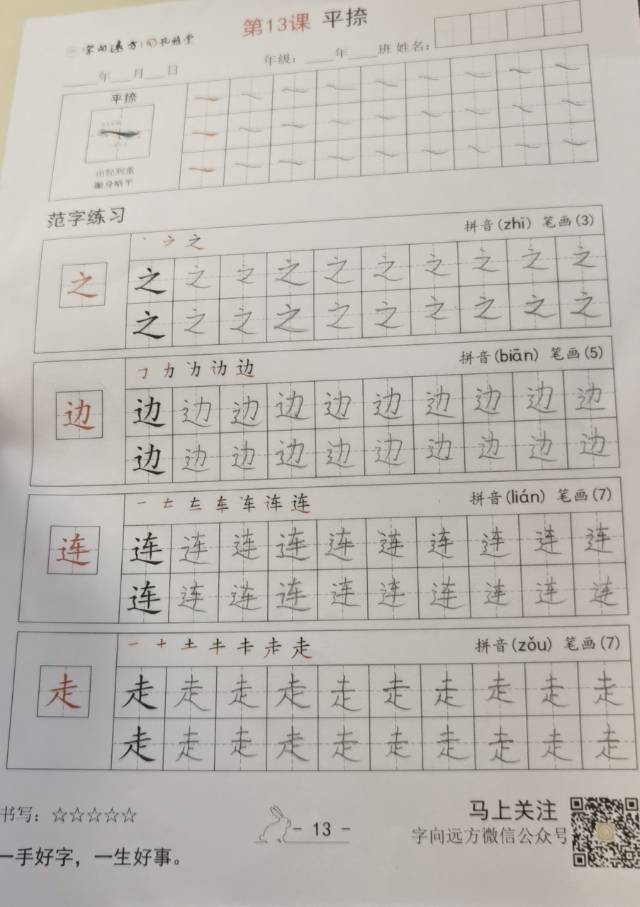 第13课 平捺
字向远方
年级：____年____班 姓名：
____年____月____日
平捺
由轻到重
范字练习
丶 ㇇ 之
拼音(zhī) 笔画(3)
之 之 之 之 之 之 之 之 之 之 之
之 之 之 之 之 之 之 之 之 之
拼音(biān) 笔画(5)
边 边 边 边 边 边 边 边 边 边 边
边 边 边 边 边 边 边 边 边 边
拼音(lián) 笔画(7)
连 连 连 连 连 连 连 连 连 连 连
连 连 连 连 连 连 连 连 连 连
拼音(zǒu) 笔画(7)
走 走 走 走 走 走 走 走 走 走 走
走 走 走 走 走 走 走 走 走 走
书写：☆☆☆☆☆
- 13 -
马上关注
字向远方微信公众号
一手好字，一生好事。